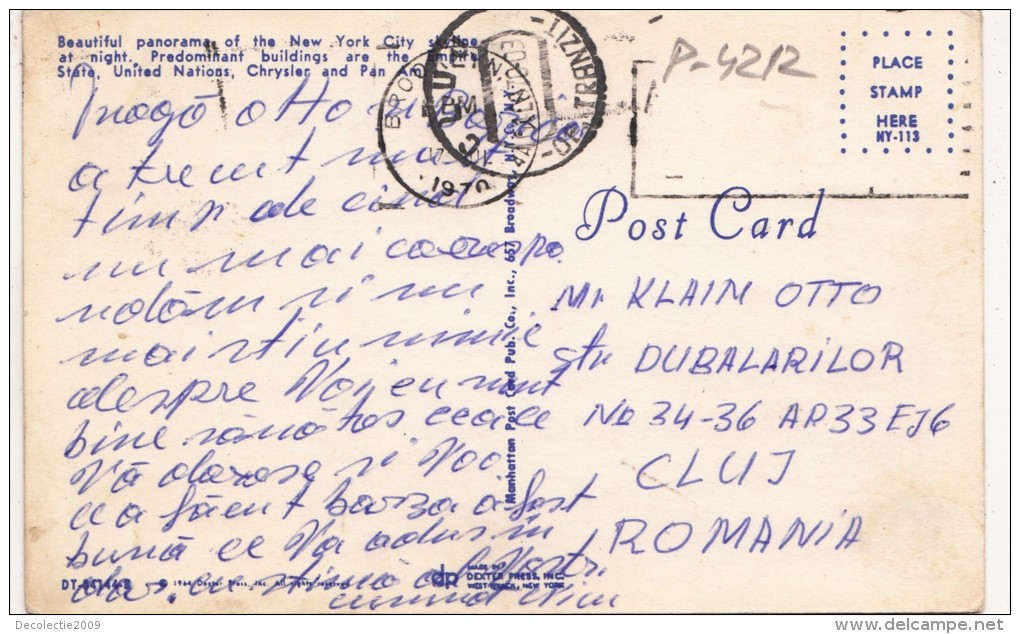 Beautiful panorama of the New York City skyline
at night. Predominant buildings are the Empire
State, United Nations, Chrysler and Pan Am
P-4212
PLACE
STAMP
HERE
NY-113
BRO
PM
1970
Post Card
Dragă Otto
a trecut mult
timp de cînd
nu mai corespo
ndăm și nu
mai știu nimic
despre Voi eu sunt
bine sănătos ceea ce
Vă doresc și Voo
ce a făcut barza a fost
bună ce Va adus în
dar. cu stimă al Vostr.
Mr KLAIM OTTO
Str DUBALARILOR
No 34-36 AP.33 EJ6
CLUJ
ROMANIA
Manhattan Post Card Pub. Co., Inc., 657 Broadway, N.Y.
© 1964 Dexter Press, Inc. All rights reserved
dp
MADE BY
DEXTER PRESS, INC.
WEST NYACK, NEW YORK
Decolectie2009